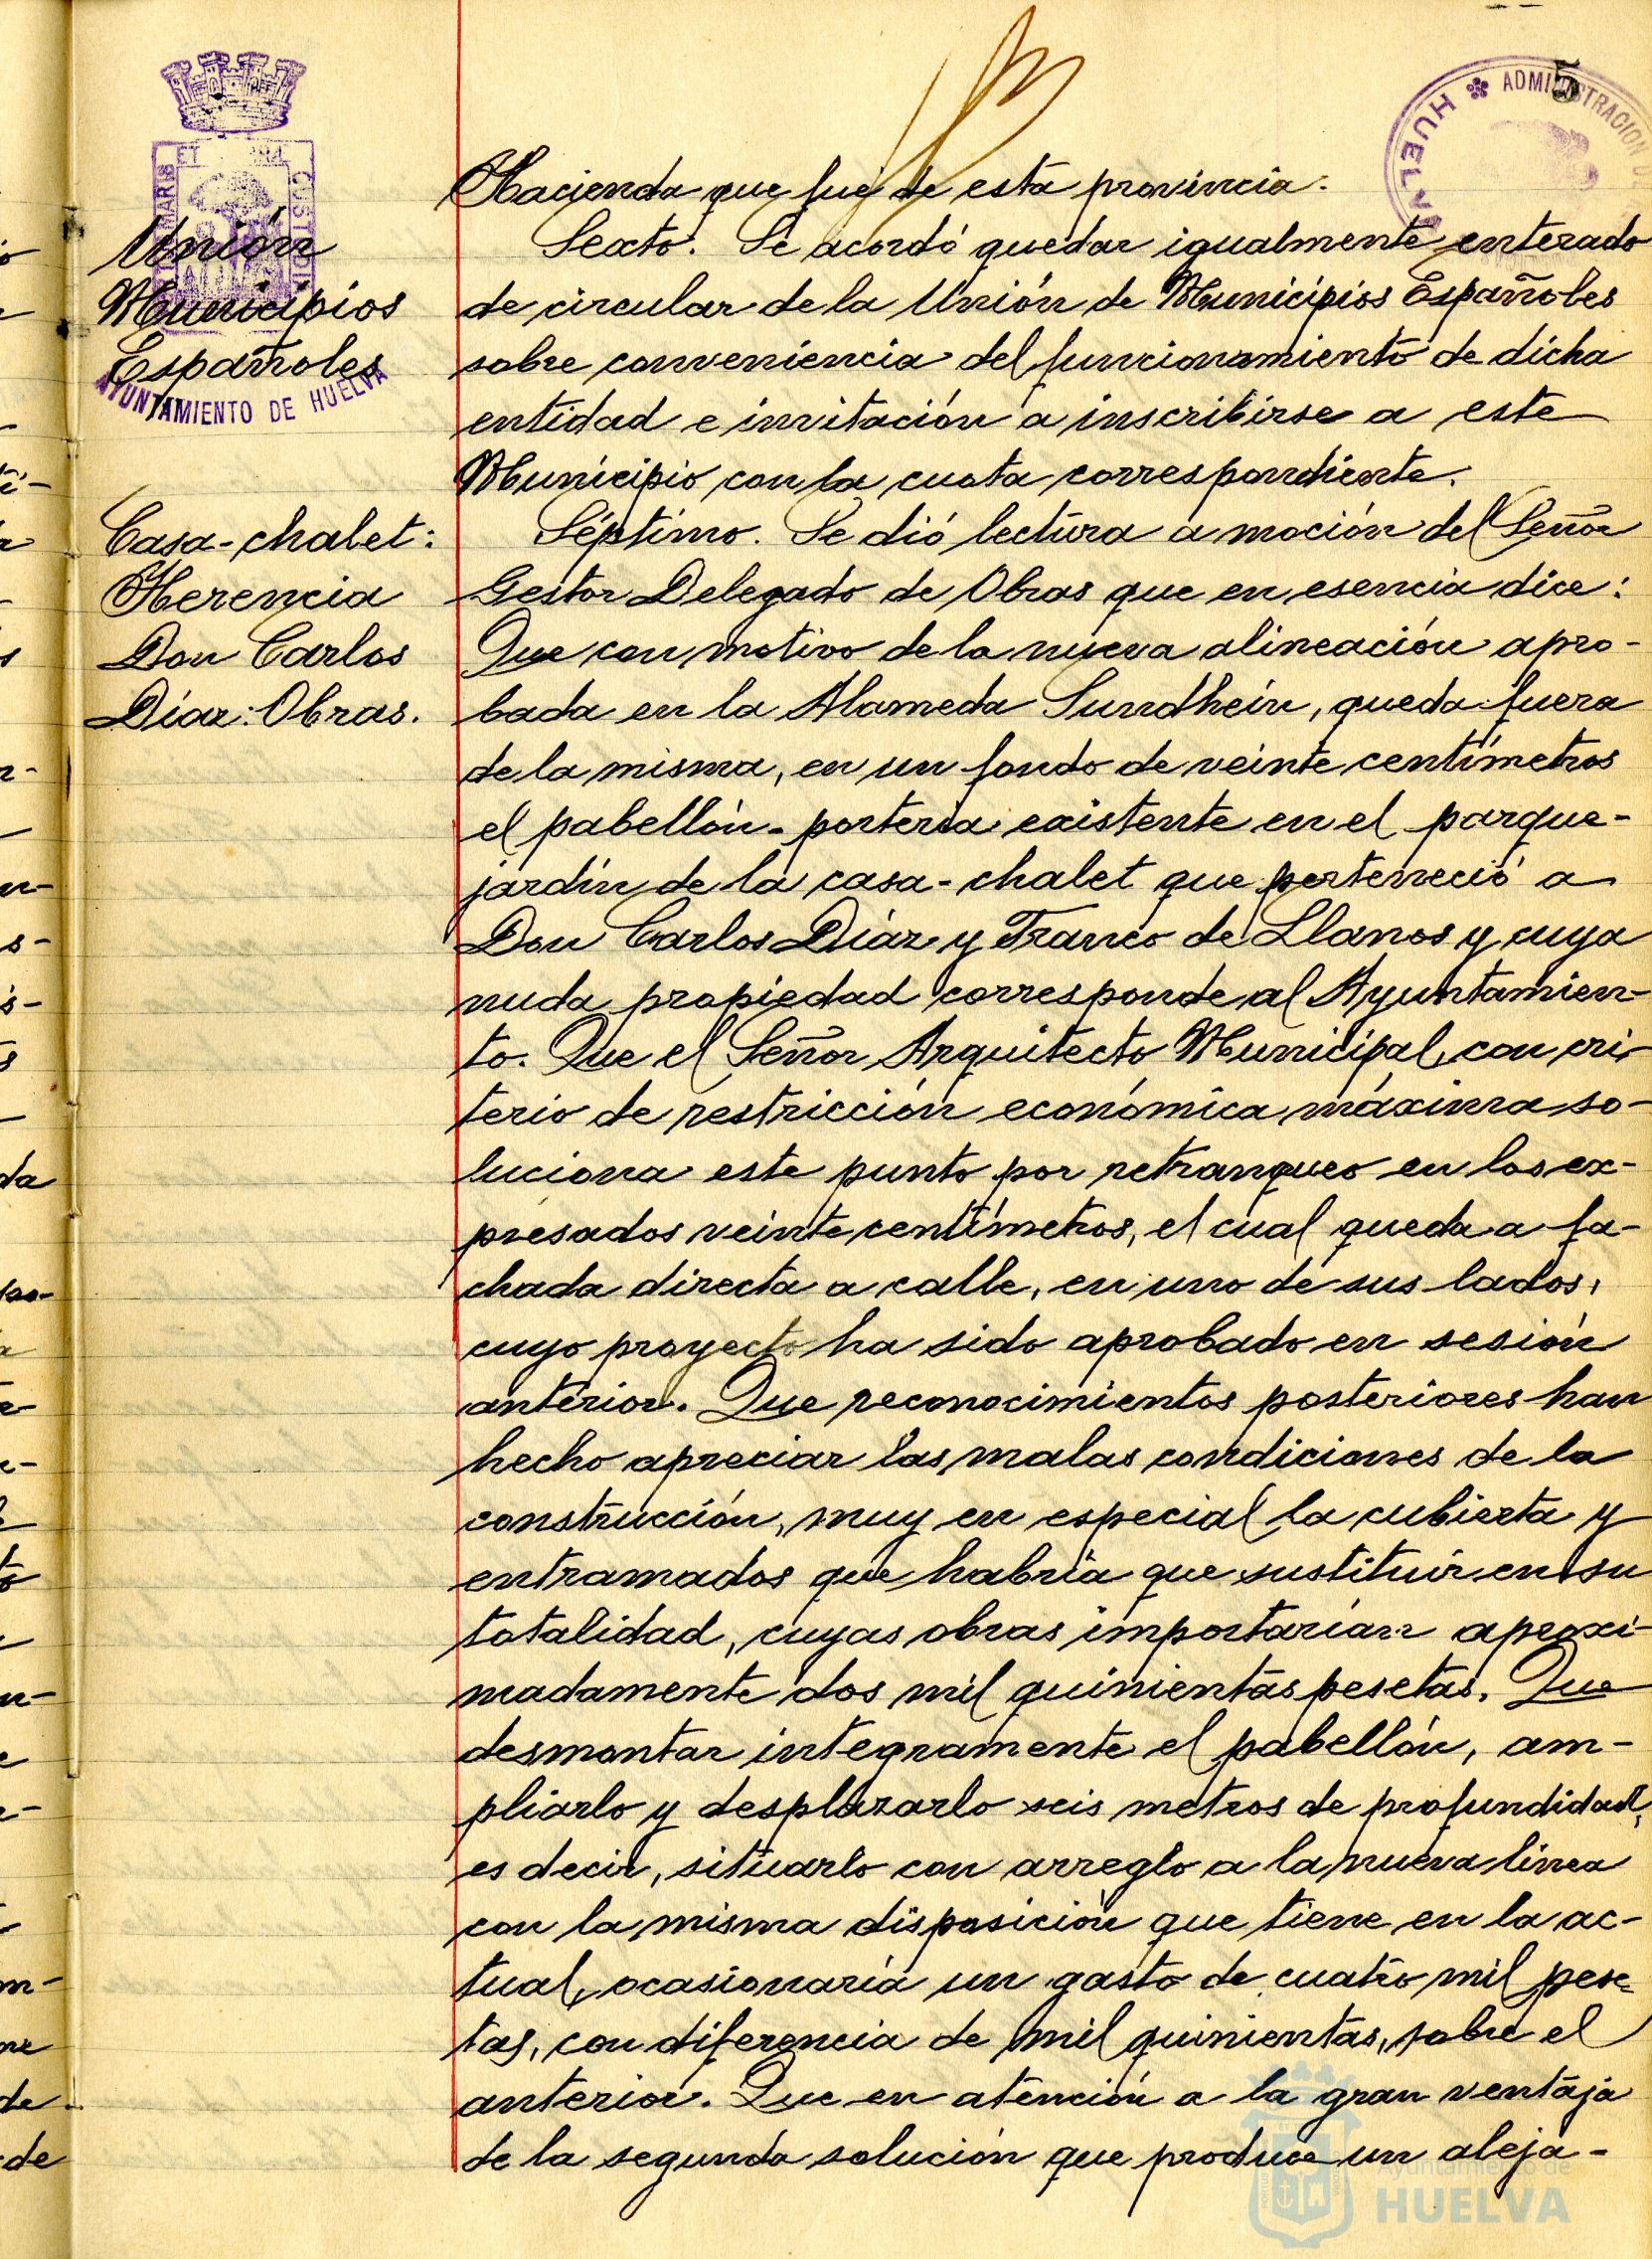 5
ADMINISTRACION DE
HUELVA
Hacienda que fué de esta provincia.
Unión
Municipios
Españoles
AYUNTAMIENTO DE HUELVA
Sexto. Se acordó quedar igualmente enterado
de circular de la Unión de Municipios Españoles
sobre conveniencia del funcionamiento de dicha
entidad e invitación a inscribirse a este
Municipio con la cuota correspondiente.
Casa-chalet:
Herencia
Don Carlos
Díaz: Obras.
Séptimo. Se dió lectura a moción del Señor
Gestor Delegado de Obras que en esencia dice:
Que con motivo de la nueva alineación apro-
bada en la Alameda Sundhein, queda fuera
de la misma, en un fondo de veinte centímetros
el pabellón-portería existente en el parque-
jardín de la casa-chalet que perteneció a
Don Carlos Díaz y Franco de Llanos y cuya
nuda propiedad corresponde al Ayuntamien-
to. Que el Señor Arquitecto Municipal, con cri-
terio de restricción económica máxima so-
luciona este punto por retranqueo en los ex-
presados veinte centímetros, el cual queda a fa-
chada directa a calle, en uno de sus lados,
cuyo proyecto ha sido aprobado en sesión
anterior. Que reconocimientos posteriores han
hecho apreciar las malas condiciones de la
construcción, muy en especial la cubierta y
entramados que habría que sustituir en su
totalidad, cuyas obras importarían aproxi-
madamente dos mil quinientas pesetas. Que
desmontar integramente el pabellón, am-
pliarlo y desplazarlo seis metros de profundidad,
es decir, situarlo con arreglo a la nueva línea
con la misma disposición que tiene en la ac-
tual, ocasionaría un gasto de cuatro mil pese-
tas, con diferencia de mil quinientas, sobre el
anterior. Que en atención a la gran ventaja
de la segunda solución que produce un aleja-
Ayuntamiento de
HUELVA